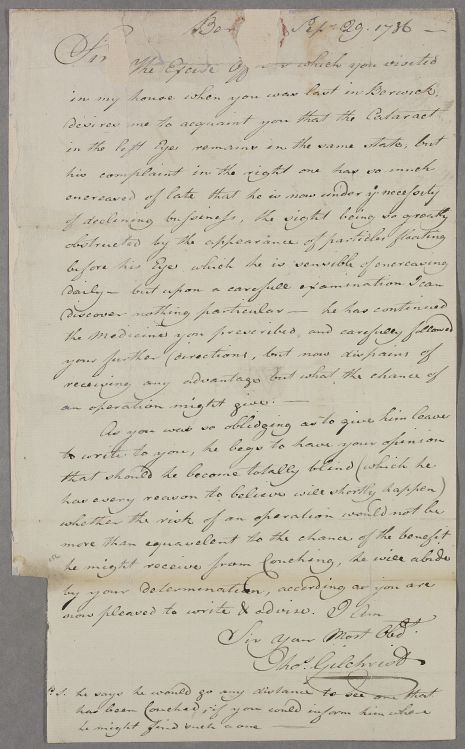 Ber Sep 29. 1786 —
Sir
The Excise Off which you visited
in my house when you was last in Berwick,
desires me to acquaint you that the Cataract
in the left Eye remains in the same state, but
his complaint in the right one has so much
encreased of late that he is now under ye necessity
of declining bussiness, the sight being so greatly
obstructed by the appearance of particles floating
before his Eye which he is sensible of encreasing
daily — but upon a carefull examination I can
discover nothing particular — he has continued
the Medicines you prescribed, and carefully followed
your further directions, but now dispairs of
receiving any advantage but what the chance of
an operation might give. —
As you was so obbliging as to give him leave
to write to you, he begs to have your openion
that should he become totally blind (which he
has every reason to believe will shortly happen)
whether the risk of an operation would not be
more than equavelent to the chance of the benefit
he might receive from Couching, he will abide
by your determination, according as you are
now pleased to write & advise. I Am
Sir Your Most Obdt.
Thos. Gilchrist
P.S. he says he would go any distance to see one that
has been Couched; if you could inform him where
he might find such a one